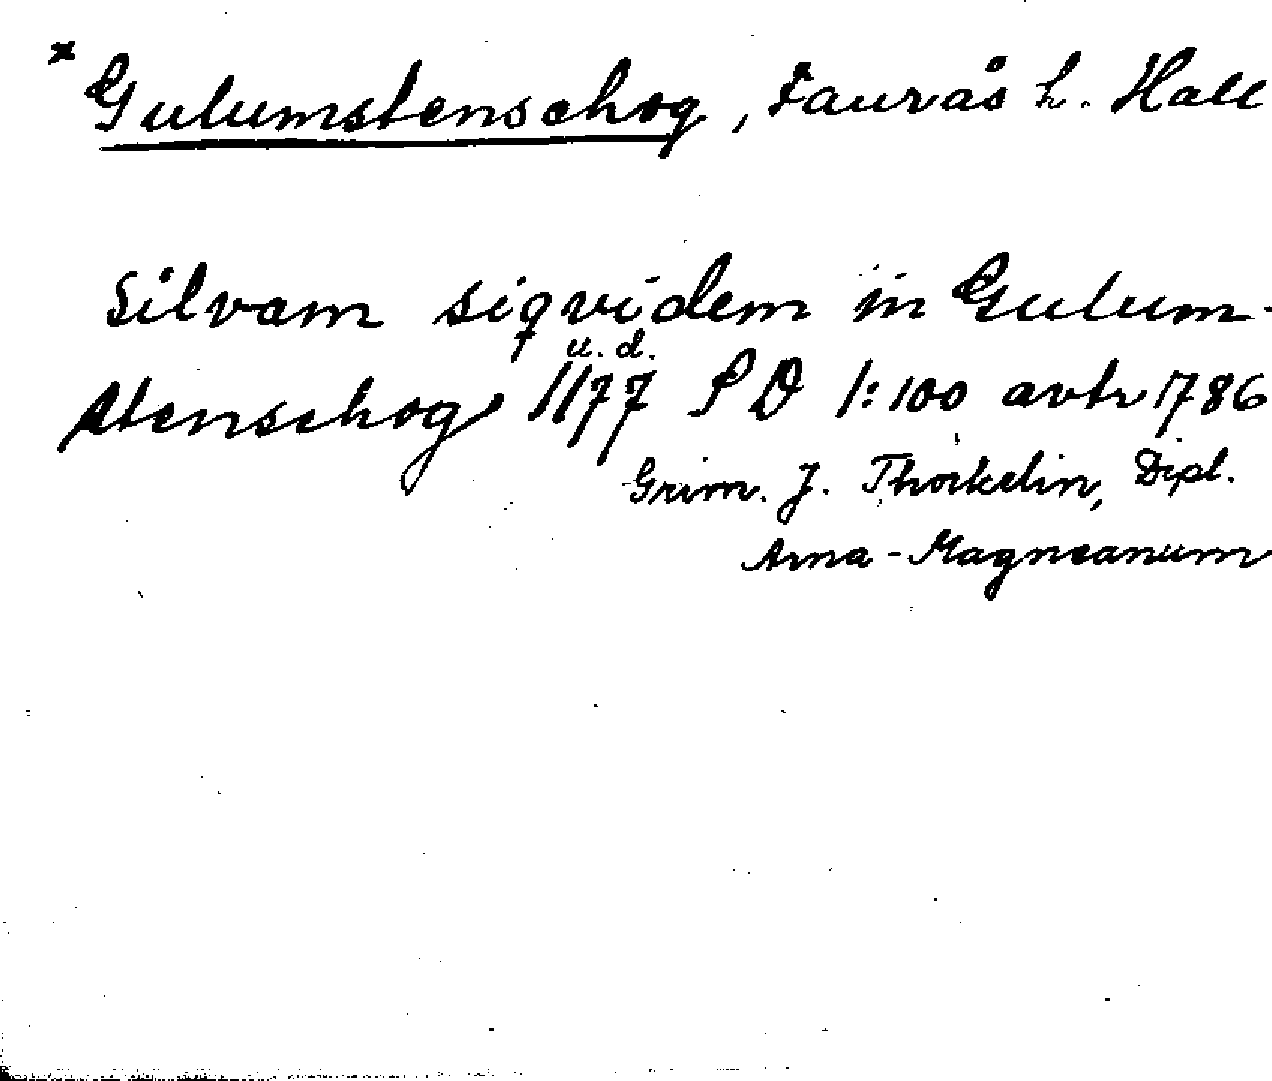 * Gulumstenschog, Faurås h. Hall
Silvam siqvidem in Gulum-
stenschog 1177 u.d. SD 1:100 avtr 1786
Grim. J. Thorkelin, Dipl.
Arna-Magneanum